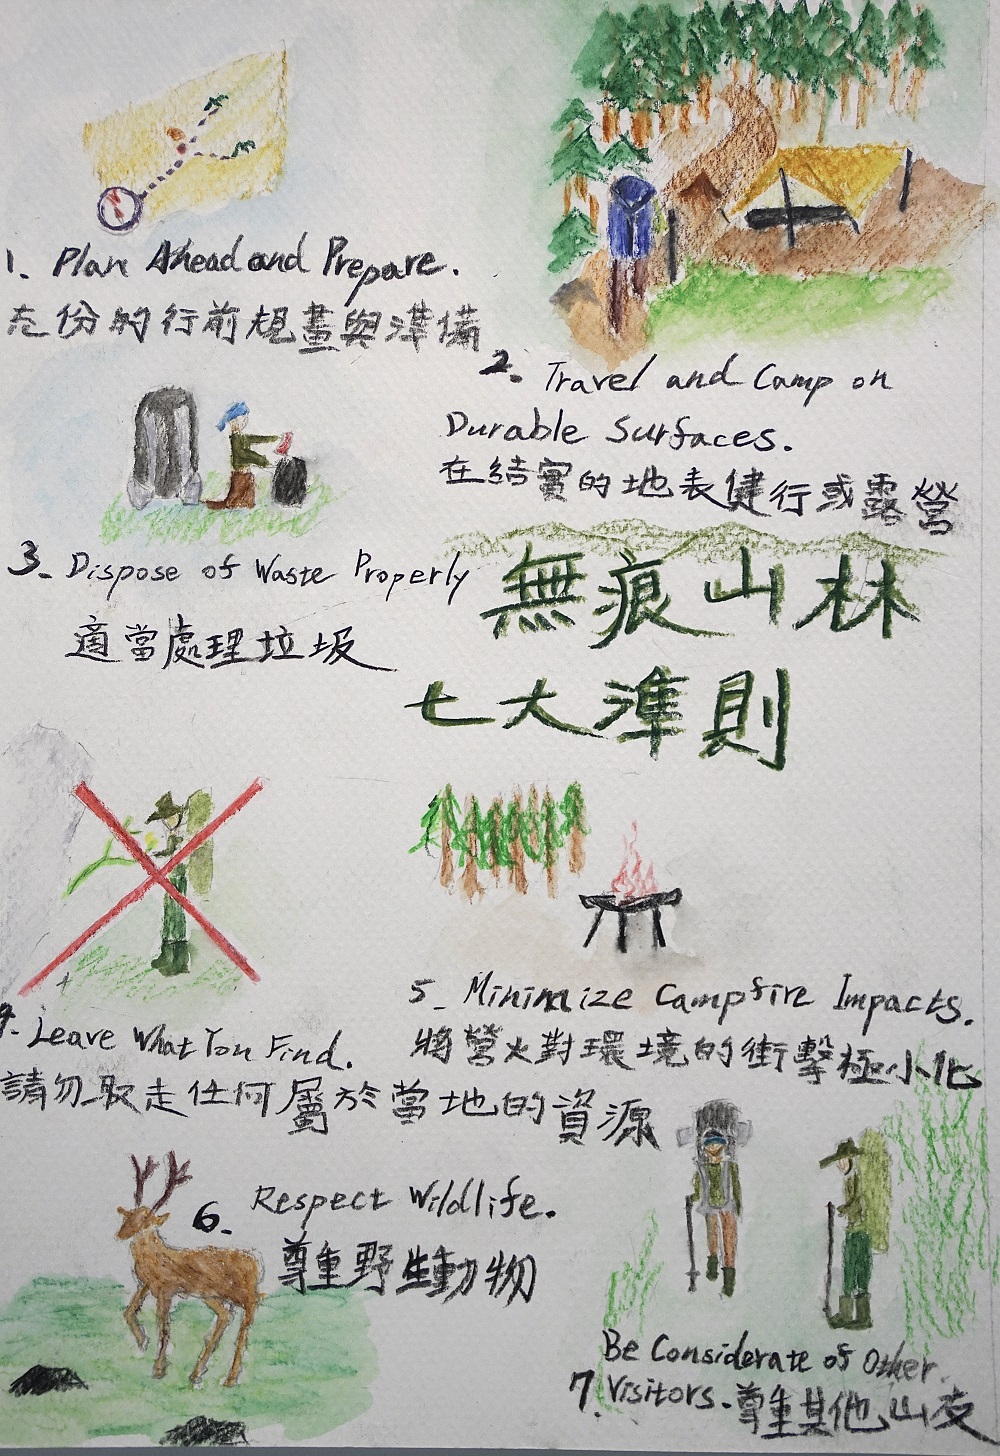 1. Plan Ahead and Prepare.
充份的行前規畫與準備
2. Travel and Camp on
Durable Surfaces.
在結實的地表健行或露營
3. Dispose of Waste Properly
適當處理垃圾
無痕山林
七大準則
4. Leave What You Find.
請勿取走任何屬於當地的資源
5. Minimize Campfire Impacts.
將營火對環境的衝擊極小化
6. Respect Wildlife.
尊重野生動物
Be Considerate of Other.
7. Visitors. 尊重其他山友